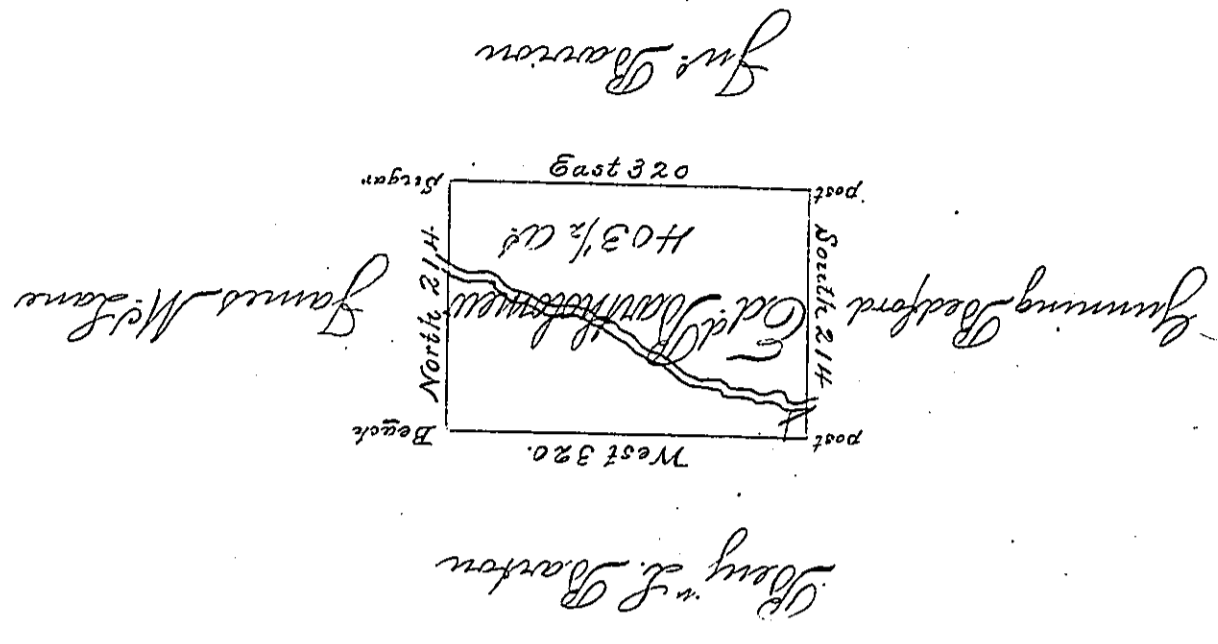 Benjn L. Barton
West 320.
post Beach
Gunning Bedford
South 214
Edd Bartholomew
North 214
James McLane
403 1/2 As
post East 320 Sugar
Jno Barron